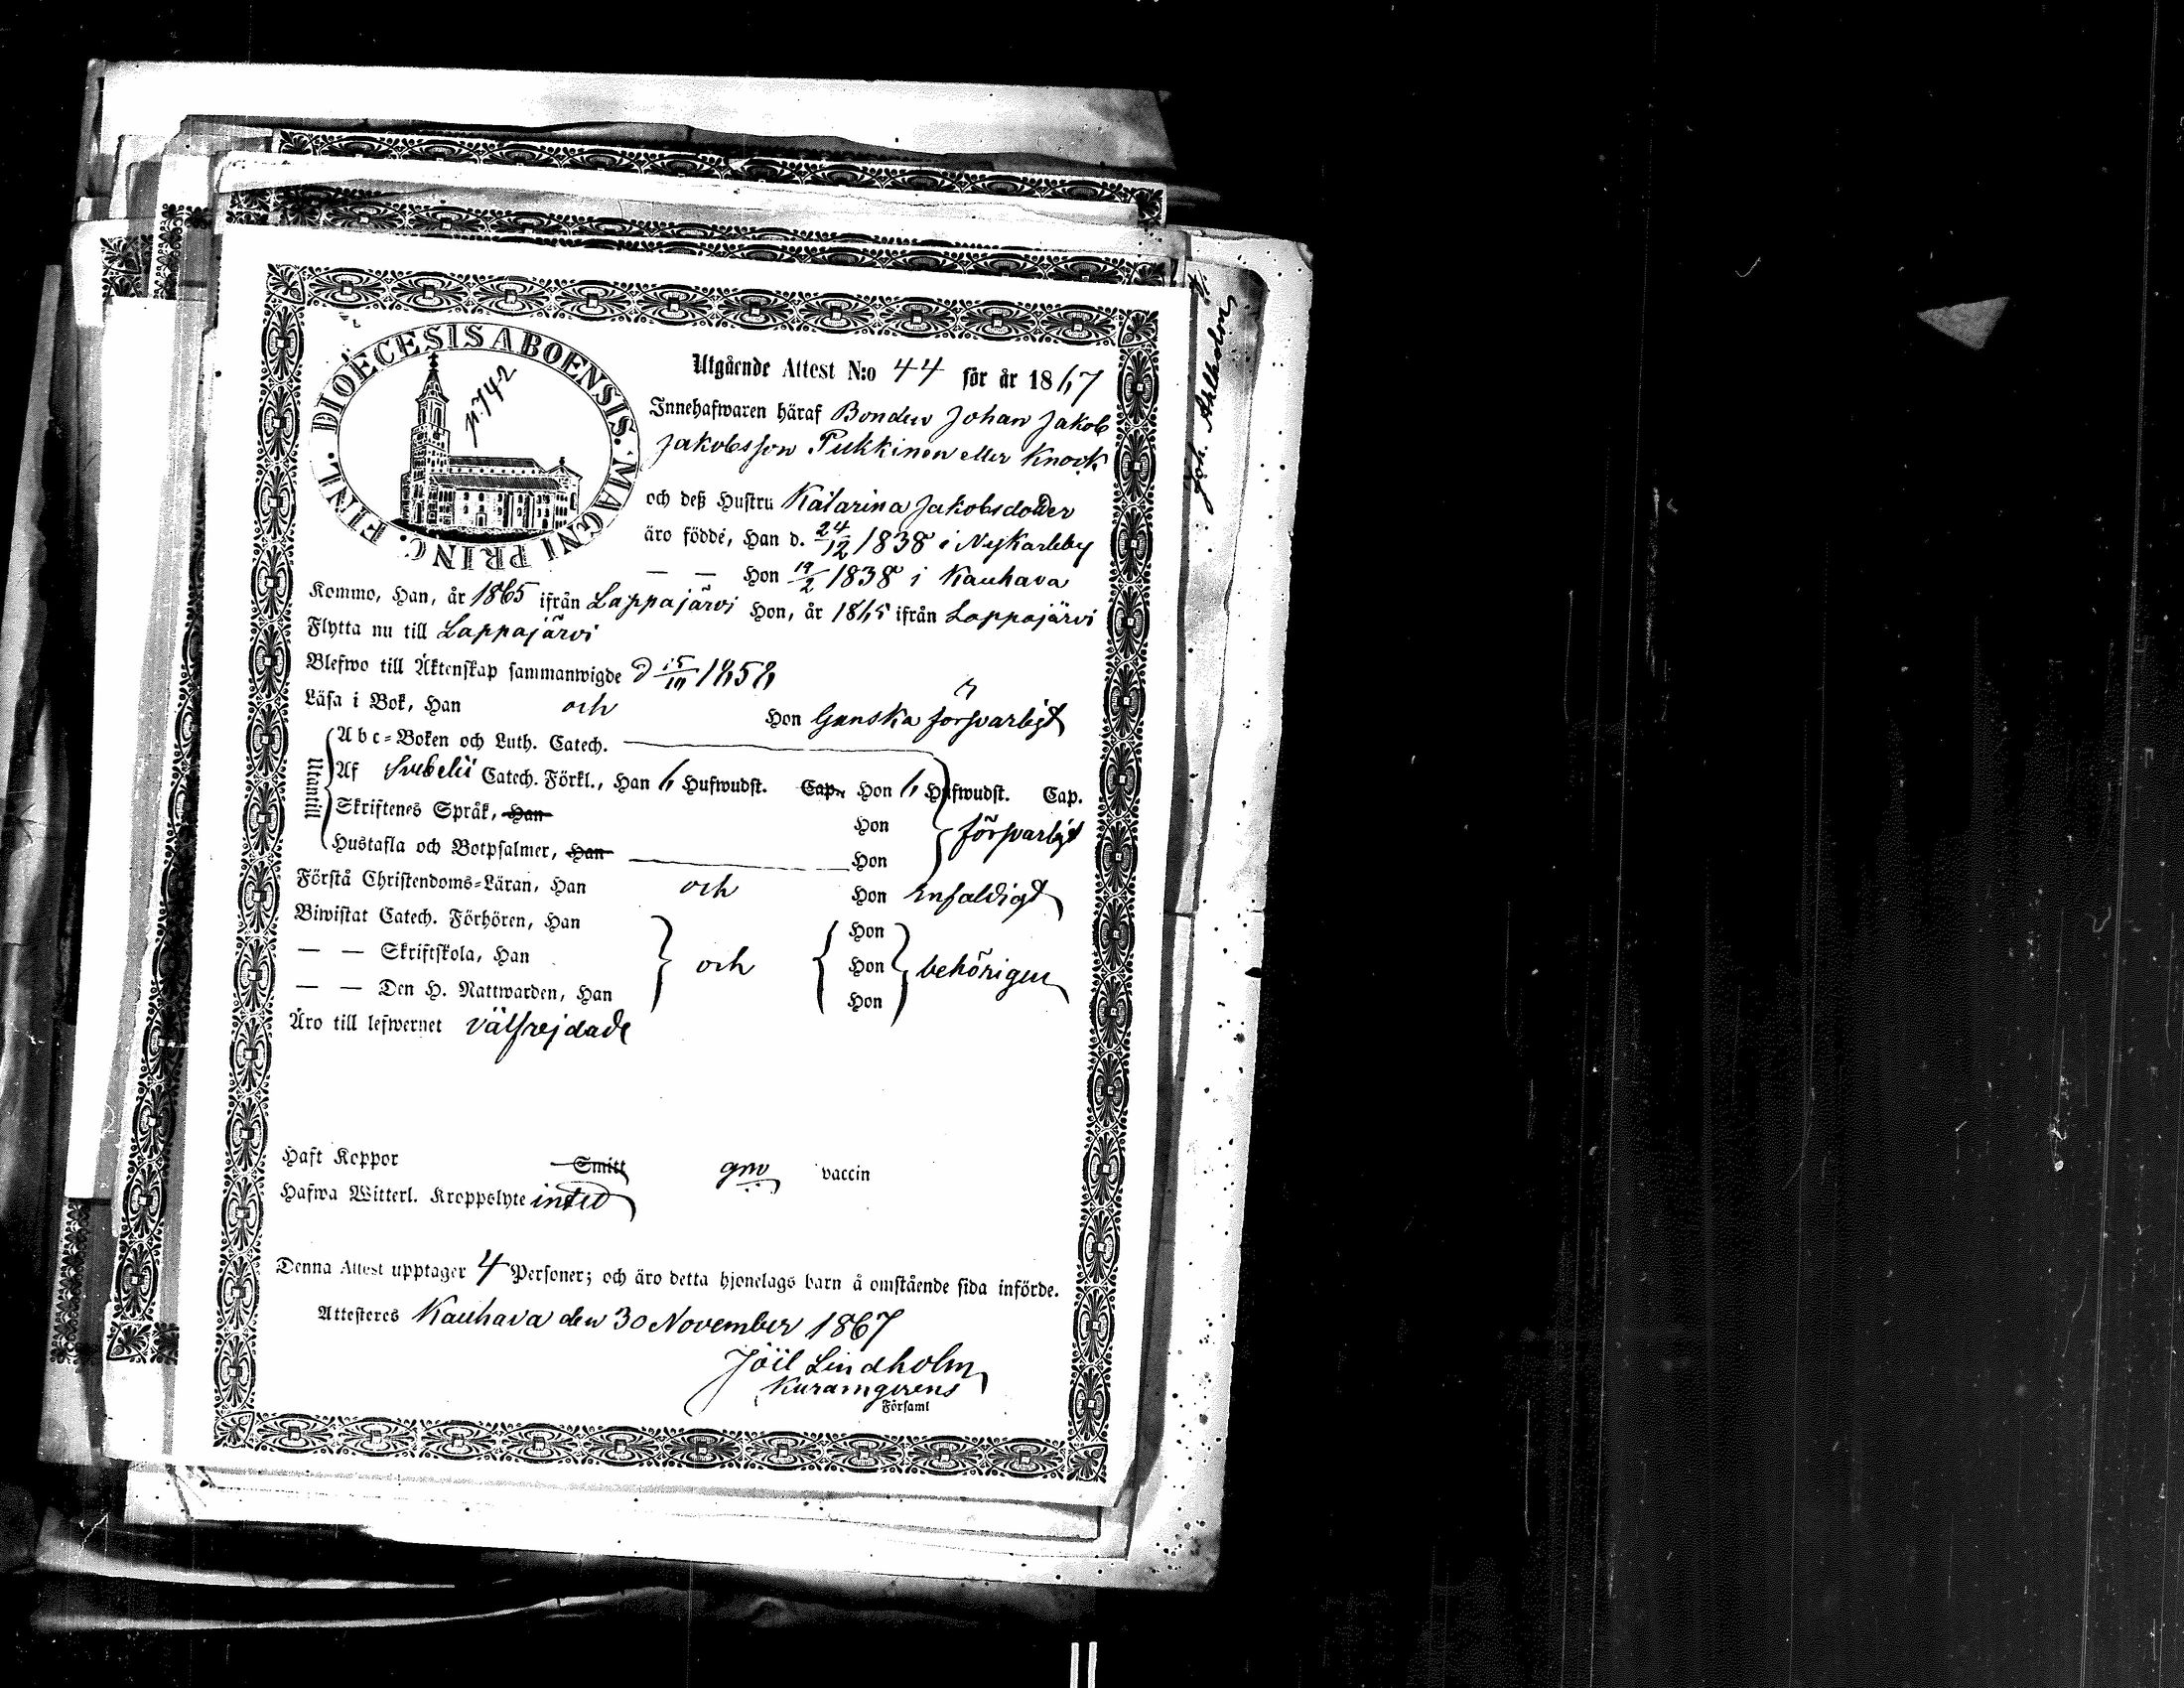 DIOECESIS ABOENSIS. MAGNI PRINC. FINL.
p. 142
Utgående Attest N:o 44 för år 1867
Innehafwaren häraf Bonden Johan Jakob
Jakobsson Pukkinen eller Knook
och deß Hustru Katarina Jakobsdotter
äro födde, Han d. 24/12 1838 i Nykarleby
— — Hon 19/2 1838 i Kauhava
Kommo, Han, år 1865 ifrån Lappajärvi Hon, år 1865 ifrån Lappajärvi
Flytta nu till Lappajärvi
Blefwo till Äktenskap sammanwigde d 15/10 1858
Läsa i Bok, Han och Hon Ganska försvarligt
Utantill
Abc-Boken och Luth. Catech.
Af Svebelii Catech. Förkl., Han 6 Hufwudst. Cap. Hon 6 Hufwudst. Cap.
Skriftenes Språk, Han Hon försvarligt
Hustafla och Botpsalmer, Han Hon
Förstå Christendoms-Läran, Han och Hon enfaldigt
Biwistat Catech. Förhören, Han Hon
— — Skriftskola, Han och Hon behörigen
— — Den H. Nattwarden, Han Hon
Äro till lefwernet välfrejdade
Haft Koppor Smitt gm vaccin
Hafwa Witterl. Kroppslyte intet
Denna Attest upptager 4 Personer; och äro detta hjonelags barn å omstående sida införde.
Attesteres Kauhava den 30 November 1867
Joil Lindholm
Församl
Joh. Ahlholm